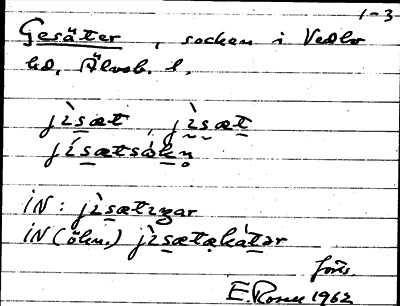 1-3
Gesäter, socken i Vedbo
hd, Älvsb. l.
jı̀sæt, jı̀sæt
jı́sætsòkn̥
iN: jı̀sætıŋar
iN (ökn.) jı̀sætakátər
förs.
E. Rosen 1962